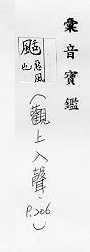 彙音寶鑑
颳 惡風也
(觀上入聲 P.206)